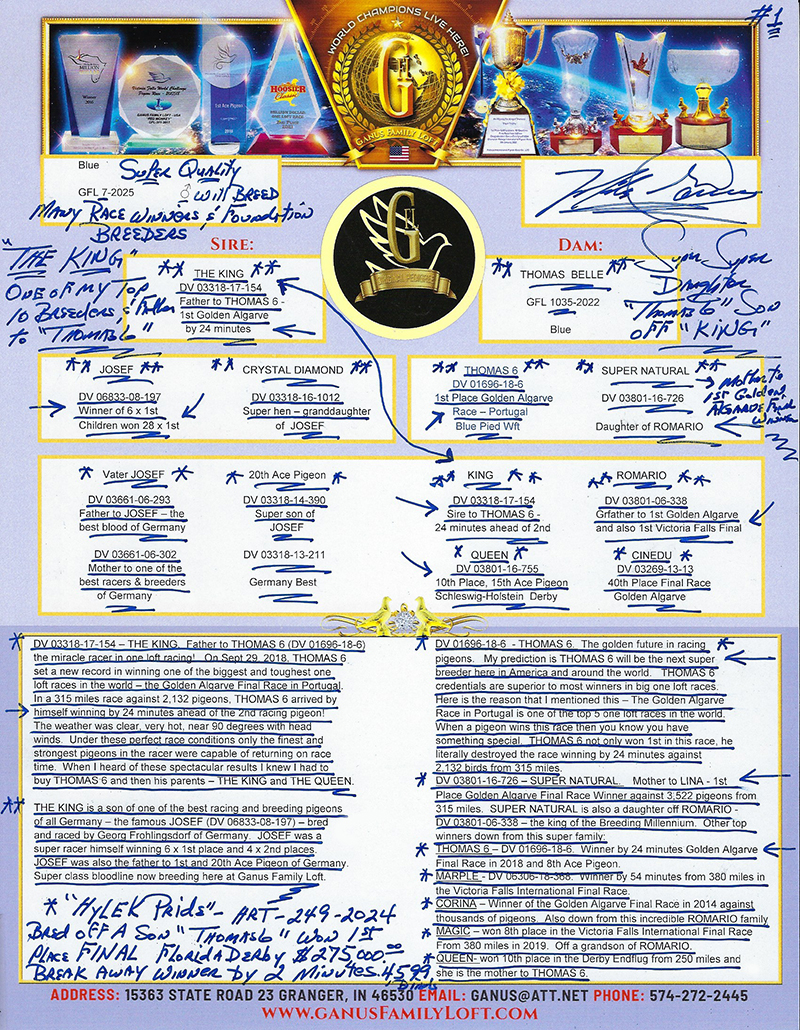 #1
WORLD CHAMPIONS LIVE HERE!
G
GANUS FAMILY LOFT
1st Ace Pigeon
HOOSIER
Classic
Blue
Super Quality
GFL 7-2025
♂ Will Breed
Many Race Winners & Foundation
Breeders
SIRE:
DAM:
"THE KING"
One of my Top
10 Breeders & Father
to "Thomas 6"
** THE KING **
DV 03318-17-154
Father to THOMAS 6 -
1st Golden Algarve
by 24 minutes
** THOMAS BELLE **
GFL 1035-2022
Blue
Super Super
Daughter
"Thomas 6" Son
off "King"
** JOSEF **
DV 06833-08-197
Winner of 6 x 1st
Children won 28 x 1st
** CRYSTAL DIAMOND **
DV 03318-16-1012
Super hen – granddaughter
of JOSEF
** THOMAS 6 **
DV 01696-18-6
1st Place Golden Algarve
Race – Portugal
Blue Pied Wft
** SUPER NATURAL **
DV 03801-16-726
Daughter of ROMARIO
Mother to
1st Golden
Algarve Final
Winner
* Vater JOSEF *
DV 03661-06-293
Father to JOSEF – the
best blood of Germany
DV 03661-06-302
Mother to one of the
best racers & breeders
of Germany
* 20th Ace Pigeon *
DV 03318-14-390
Super son of
JOSEF
DV 03318-13-211
Germany Best
** KING **
DV 03318-17-154
Sire to THOMAS 6 -
24 minutes ahead of 2nd
* QUEEN *
DV 03801-16-755
10th Place, 15th Ace Pigeon
Schleswig-Holstein Derby
** ROMARIO **
DV 03801-06-338
Grfather to 1st Golden Algarve
and also 1st Victoria Falls Final
* CINEDU *
DV 03269-13-13
40th Place Final Race
Golden Algarve
* DV 03318-17-154 – THE KING. Father to THOMAS 6 (DV 01696-18-6)
the miracle racer in one loft racing! On Sept 29, 2018, THOMAS 6
set a new record in winning one of the biggest and toughest one
loft races in the world – the Golden Algarve Final Race in Portugal.
In a 315 miles race against 2,132 pigeons, THOMAS 6 arrived by
himself winning by 24 minutes ahead of the 2nd racing pigeon!
The weather was clear, very hot, near 90 degrees with head
winds. Under these perfect race conditions only the finest and
strongest pigeons in the racer were capable of returning on race
time. When I heard of these spectacular results I knew I had to
buy THOMAS 6 and then his parents – THE KING and THE QUEEN.
** THE KING is a son of one of the best racing and breeding pigeons
of all Germany – the famous JOSEF (DV 06833-08-197) – bred
and raced by Georg Frohlingsdorf of Germany. JOSEF was a
super racer himself winning 6 x 1st place and 4 x 2nd places.
JOSEF was also the father to 1st and 20th Ace Pigeon of Germany.
Super class bloodline now breeding here at Ganus Family Loft.
* "Hylek Pride" - ART-249-2024
Bred off a Son "Thomas 6" Won 1st
Place Final Florida Derby $275,000.00
Break Away Winner by 2 Minutes 4,599
Birds
* DV 01696-18-6 - THOMAS 6. The golden future in racing *
pigeons. My prediction is THOMAS 6 will be the next super
breeder here in America and around the world. THOMAS 6
credentials are superior to most winners in big one loft races.
Here is the reason that I mentioned this – The Golden Algarve
Race in Portugal is one of the top 5 one loft races in the world.
When a pigeon wins this race then you know you have
something special. THOMAS 6 not only won 1st in this race, he
literally destroyed the race winning by 24 minutes against
2,132 birds from 315 miles.
* DV 03801-16-726 – SUPER NATURAL. Mother to LINA - 1st
Place Golden Algarve Final Race Winner against 3,522 pigeons from
315 miles. SUPER NATURAL is also a daughter off ROMARIO -
DV 03801-06-338 – the king of the Breeding Millennium. Other top
winners down from this super family:
* THOMAS 6 – DV 01696-18-6. Winner by 24 minutes Golden Algarve
Final Race in 2018 and 8th Ace Pigeon.
* MARPLE - DV 06306-18-368. Winner by 54 minutes from 380 miles in
the Victoria Falls International Final Race.
* CORINA – Winner of the Golden Algarve Final Race in 2014 against
thousands of pigeons. Also down from this incredible ROMARIO family
* MAGIC – won 8th place in the Victoria Falls International Final Race
From 380 miles in 2019. Off a grandson of ROMARIO.
* QUEEN- won 10th place in the Derby Endflug from 250 miles and
she is the mother to THOMAS 6.
ADDRESS: 15363 STATE ROAD 23 GRANGER, IN 46530 EMAIL: GANUS@ATT.NET PHONE: 574-272-2445
WWW.GANUSFAMILYLOFT.COM